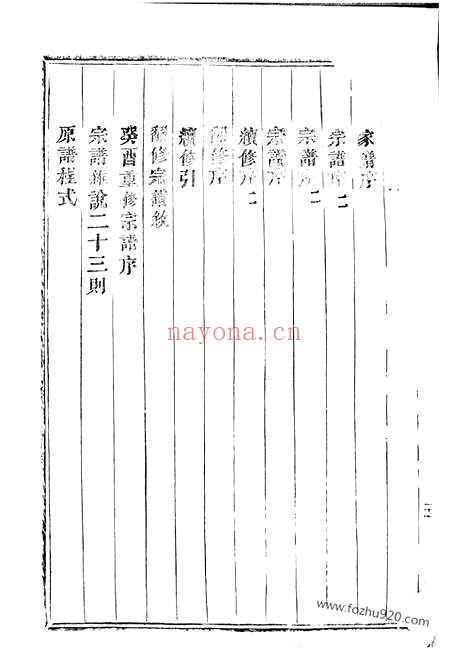 家譜序
宗譜序二
宗譜序二
宗譜序
續修序二
修序
續修引
修宗譜敘
癸酉重修宗譜序
宗譜雜說二十三則
原譜程式
nayona.cn
www.fozhu920.com